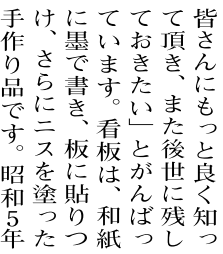 皆さんにもっと良く知っ
て頂き、また後世に残し
ておきたい」とがんばっ
ています。看板は、和紙
に墨で書き、板に貼りつ
け、さらにニスを塗った
手作り品です。昭和5年